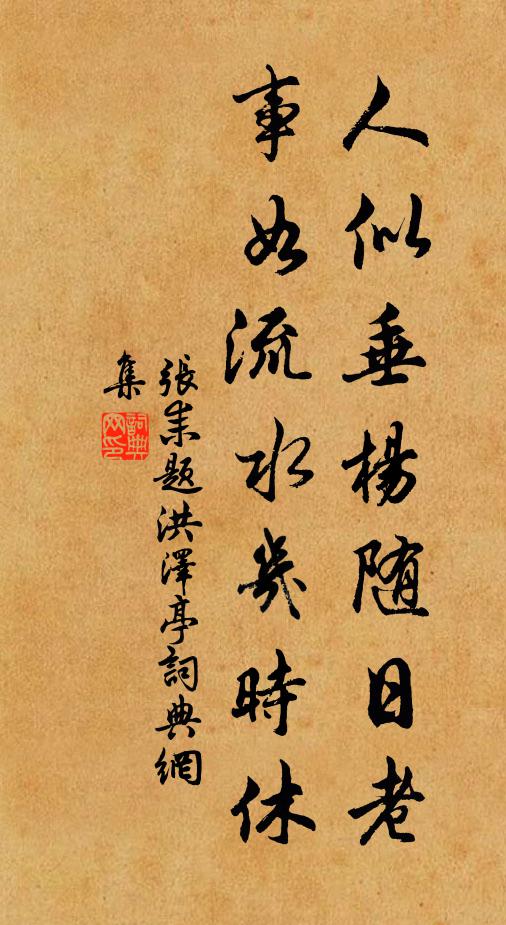 人似垂楊随日老
事如流水幾時休
張耒題洪澤亭詞典網
集
詞典
网印